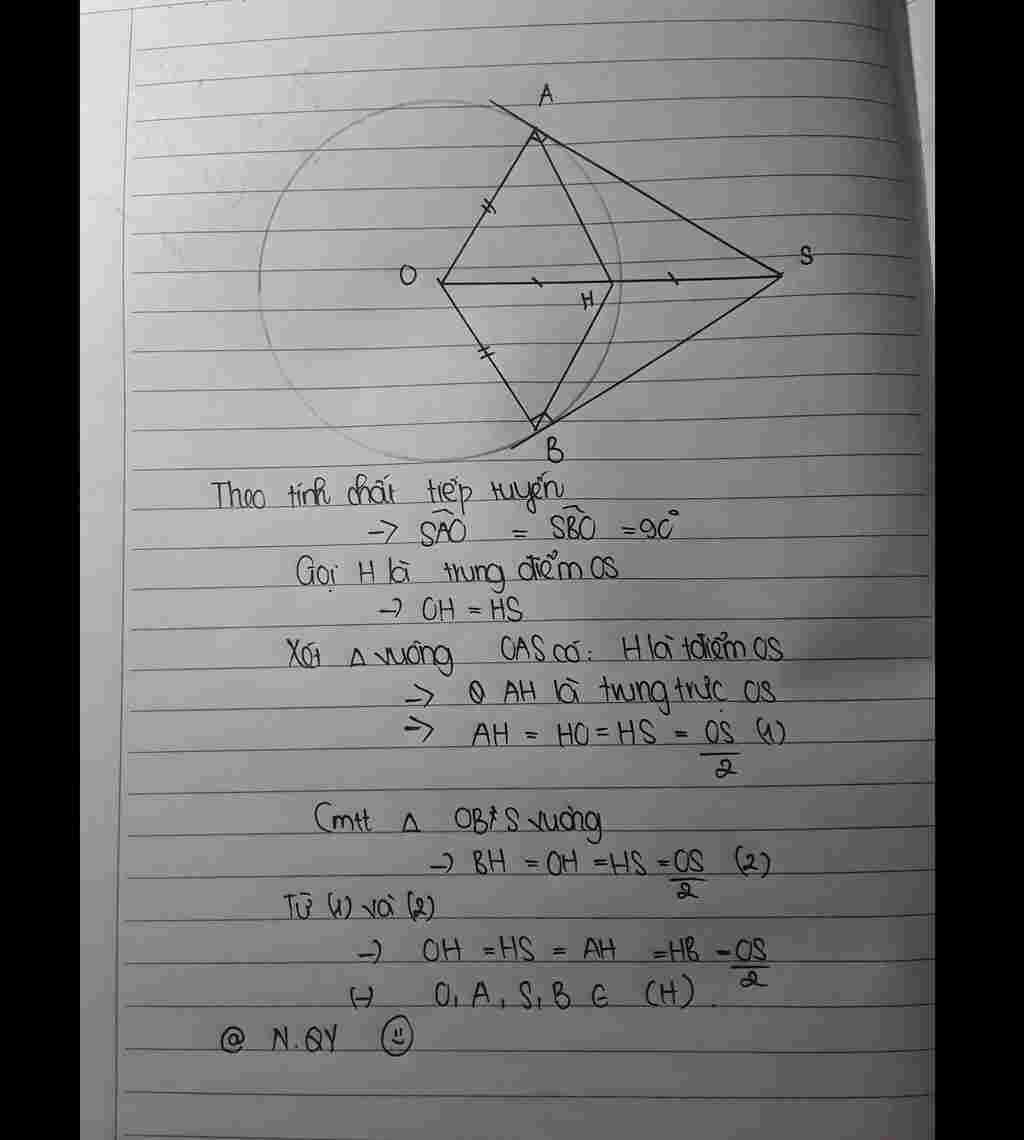 A
O
H
S
B
Theo tính chất tiếp tuyến
→ SÂO = SB̂O = 90°
Gọi H là trung điểm OS
→ OH = HS
Xét Δ vuông OAS có: H là tđiểm OS
→ AH là trung trực OS
→ AH = HO = HS = OS/2 (1)
Cmtt Δ OBS vuông
→ BH = OH = HS = OS/2 (2)
Từ (1) và (2)
→ OH = HS = AH = HB = OS/2
(→ O, A, S, B ∈ (H).
@ N.QY